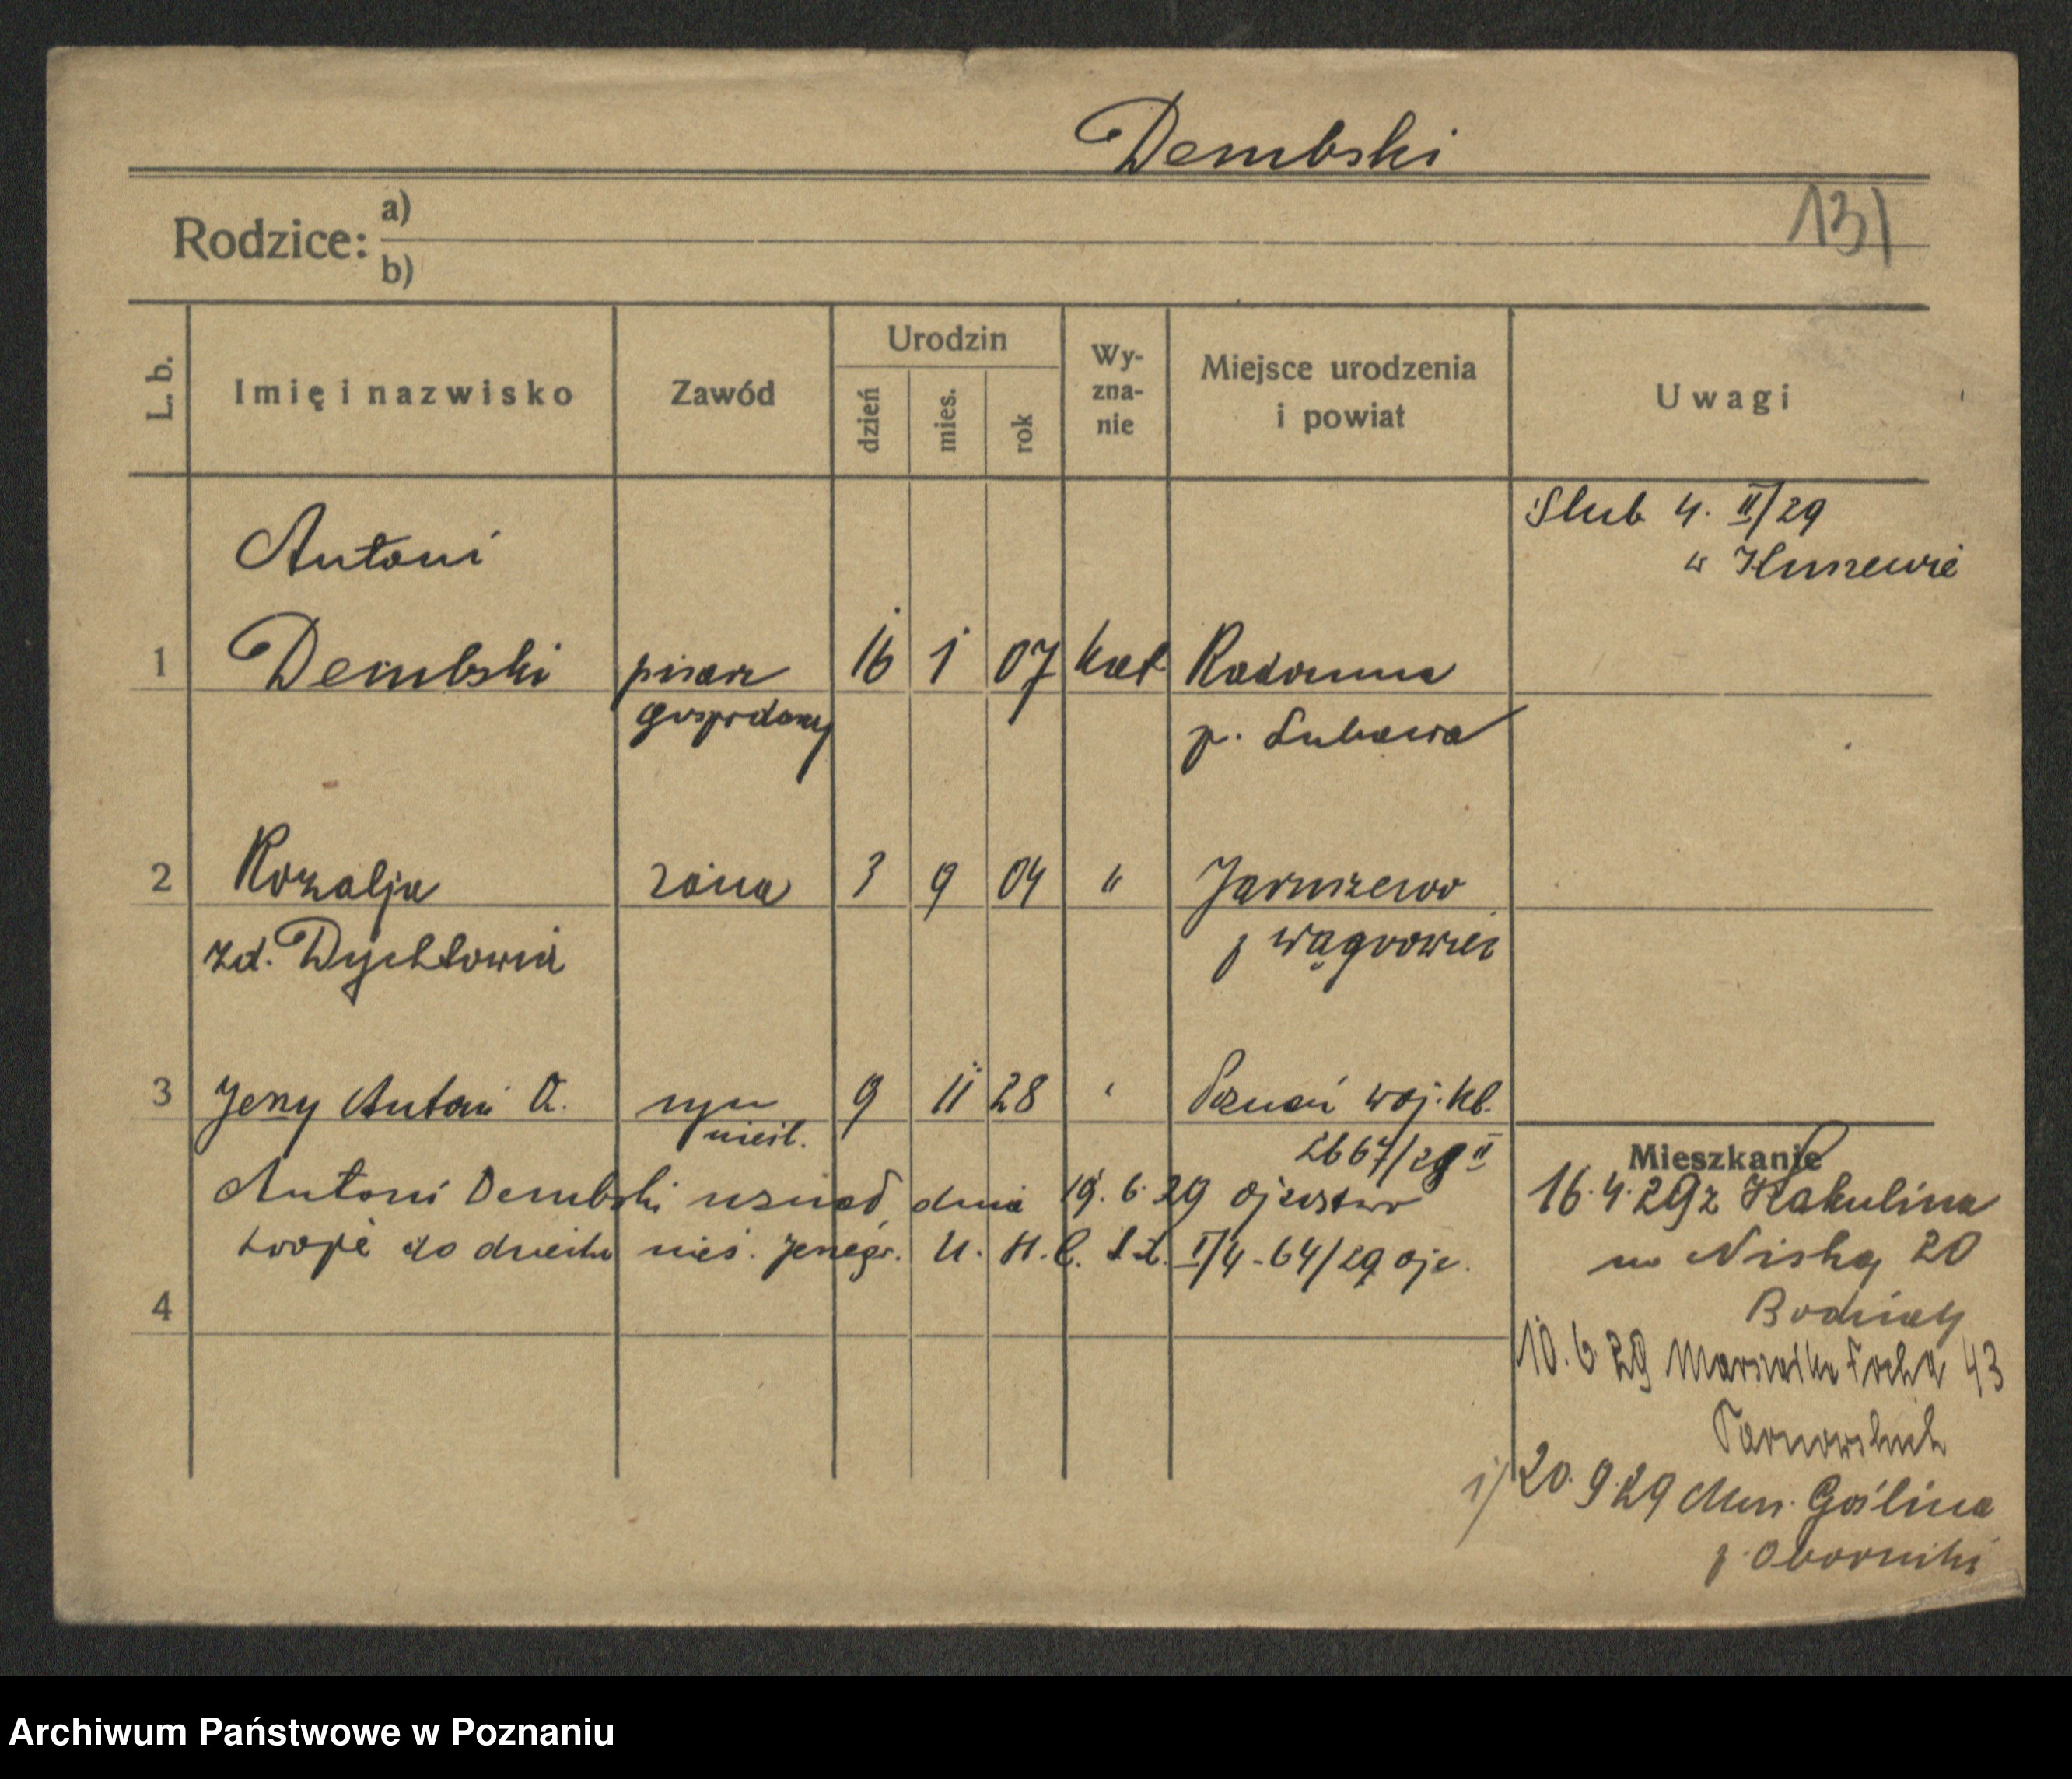 Dembski
131
Rodzice: a)
b)
L. b.
Imię i nazwisko
Zawód
Urodzin
dzień
mies.
rok
Wy-
zna-
nie
Miejsce urodzenia
i powiat
Uwagi
Ślub 4. II/29
w
Antoni
1 Dembski pisarz 16 1 07 kat Radomno
gospodarczy p. Lubawa
2 Rozalja żona 3 9 04 " Jaroszewo
zd. p wągrowiec
3 Jerzy Antoni D. syn 9 11 28 " Poznań woj. kl.
nieśl. 2667/28 II
Antoni Dembski uznał dnia 19. 6. 29 ojcostwo
swoje do dziecka nieś. Jerzego. U. I/4-64/29 ojc.
4
Mieszkanie
16. 4. 29 z Kakulina
na Niską 20
10. 6 29 Marszałka Focha 43
Tarnowskich
1) 20. 9. 29 Mur. Goślina
p. Oborniki
Archiwum Państwowe w Poznaniu